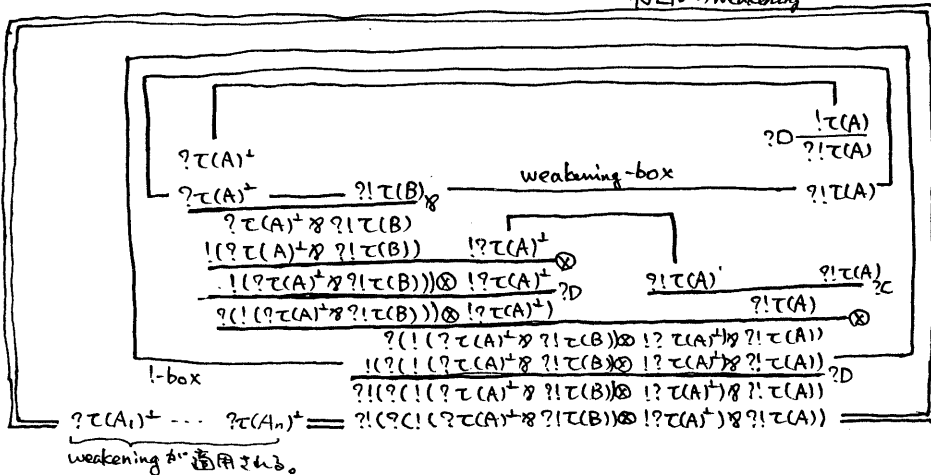 ?τ(A)^⊥
?D !τ(A)
?!τ(A)
weakening-box
?τ(A)^⊥ ?!τ(B) ⅋ ?!τ(A)
?τ(A)^⊥ ⅋ ?!τ(B)
!(?τ(A)^⊥ ⅋ ?!τ(B)) !?τ(A)^⊥ ⊗
!(?τ(A)^⊥ ⅋ ?!τ(B))) ⊗ !?τ(A)^⊥ ?D ?!τ(A) ?!τ(A) ?C
?(!(?τ(A)^⊥ ⅋ ?!τ(B))) ⊗ !?τ(A)^⊥) ?!τ(A) ⊗
?(!(?τ(A)^⊥ ⅋ ?!τ(B)) ⊗ !?τ(A)^⊥) ⅋ ?!τ(A))
!-box !(?(!(?τ(A)^⊥ ⅋ ?!τ(B)) ⊗ !?τ(A)^⊥) ⅋ ?!τ(A)) ?D
?!(?(!(?τ(A)^⊥ ⅋ ?!τ(B)) ⊗ !?τ(A)^⊥) ⅋ ?!τ(A))
?τ(A₁)^⊥ --- ?τ(Aₙ)^⊥ ?!(?(!(?τ(A)^⊥ ⅋ ?!τ(B)) ⊗ !?τ(A)^⊥) ⅋ ?!τ(A))
weakening が適用される。